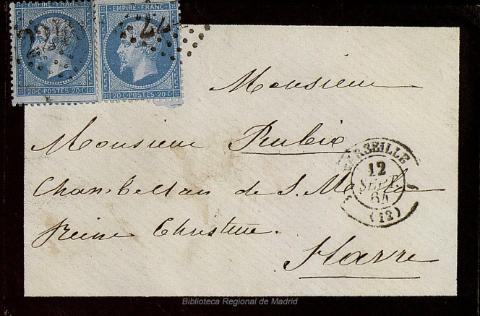 EMPIRE FRANC
20 C POSTES 20 C
EMPIRE FRANC
20 C POSTES 20 C
Monsieur
Monsieur Rubio
Chambellan de S. M.
Reine Christine.
Havre
MARSEILLE
12
SEPT
64
(12)
Biblioteca Regional de Madrid